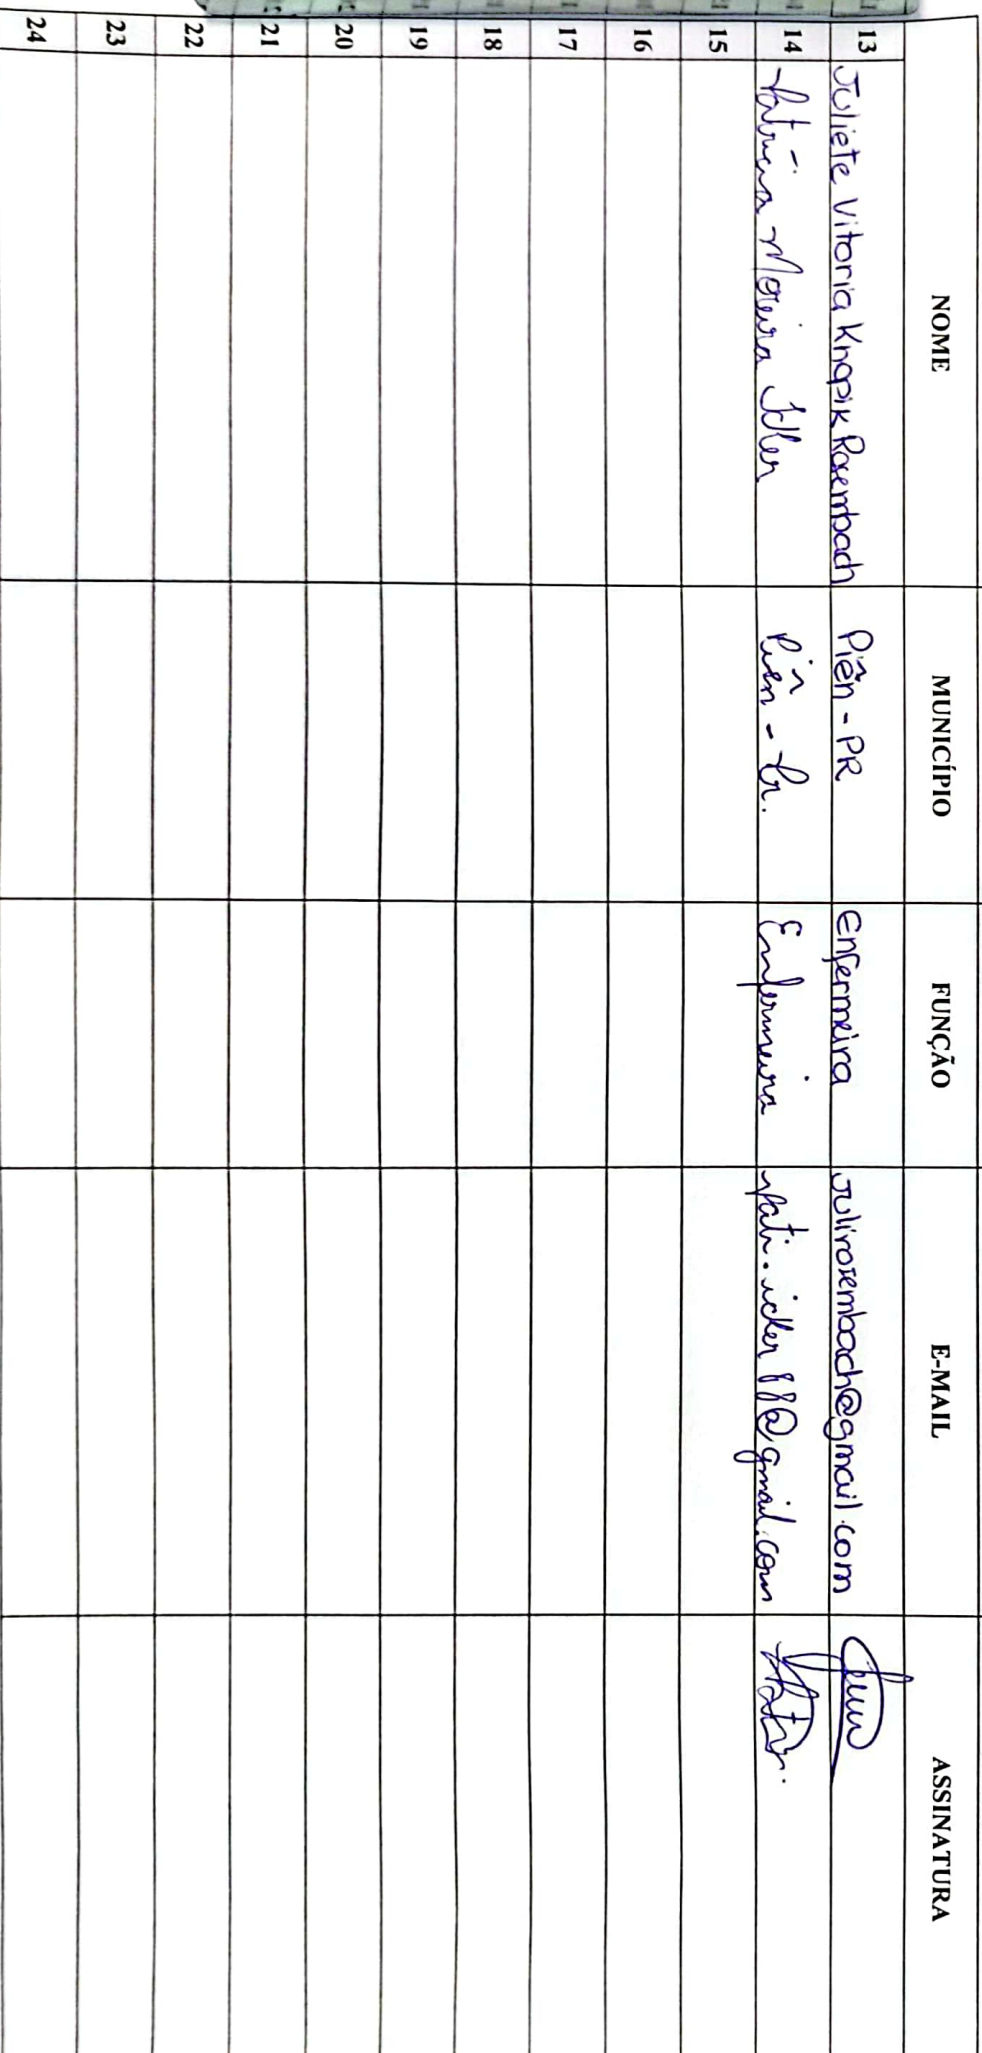 NOME MUNICÍPIO FUNÇÃO E-MAIL ASSINATURA
13 Juliete Vitoria Knopik Rosembach Piên - PR Enfermeira Julirosembach@gmail.com
14 Patrícia Moreira Idler Piên - Pr. Enfermeira pati.idler88@gmail.com
15
16
17
18
19
20
21
22
23
24